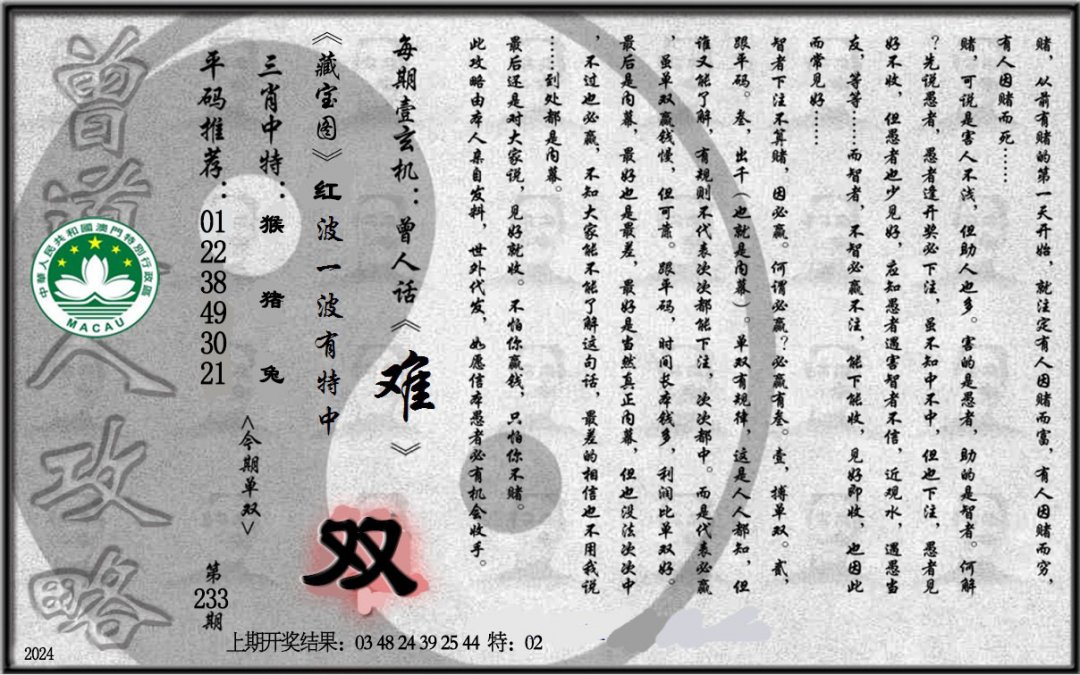 赌，从前有赌的第一天开始，就注定有人因赌而富，有人因赌而穷，
有人因赌而死……
赌，可说是害人不浅，但助人也多。害的是愚者，助的是智者。何解
？先说愚者，愚者逢开奖必下注，虽不知中不中，但也下注，愚者见
好不收，但愚者也少见好，应知愚者遇害智者不信，近观水，遇愚当
友，等等……而智者，不智必赢不注，能下能收，见好即收，也因此
而常见好……
智者下注不算赌，因必赢。何谓必赢？必赢有叁。壹，搏单双。贰，
跟平码。叁，出千（也就是内幕）。单双有规律，这是人人都知，但
谁又能了解，有规则不代表次次都能下注，次次都中。而是代表必赢
，虽单双赢钱慢，但可靠。跟平码，时间长本钱多，利润比单双好。
最后是内幕，最好也是最差，最好是当然真正内幕，但也没法次次中
，不过也必赢，不知大家能不能了解这句话，最差的相信也不用我说
……到处都是内幕。
最后还是对大家说，见好就收。不怕你赢钱，只怕你不赌。
此攻略由本人亲自发料，世外代发，如愿信本愚者必有机会收手。
每期壹玄机：曾人话《难》
《藏宝图》红波一波有特中
双
三肖中特：猴 猪 兔
<今期单双>
平码推荐：01 22 38 49 30 21
第233期
曾道人攻略
中華人民共和國澳門特別行政區
MACAU
上期开奖结果：03 48 24 39 25 44 特：02
2024